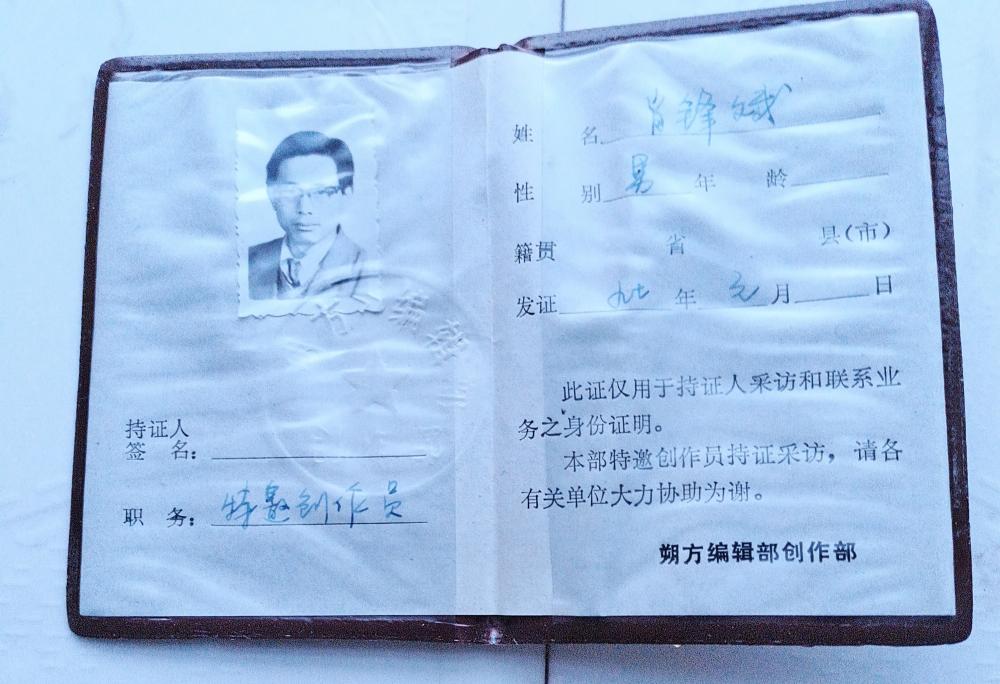 持证人
签 名:
职 务: 特邀创作员
姓 名 肖锋斌
性 别 男 年 龄
籍贯 省 县(市)
发证 九七 年 元 月 日
此证仅用于持证人采访和联系业
务之身份证明。
本部特邀创作员持证采访,请各
有关单位大力协助为谢。
朔方编辑部创作部